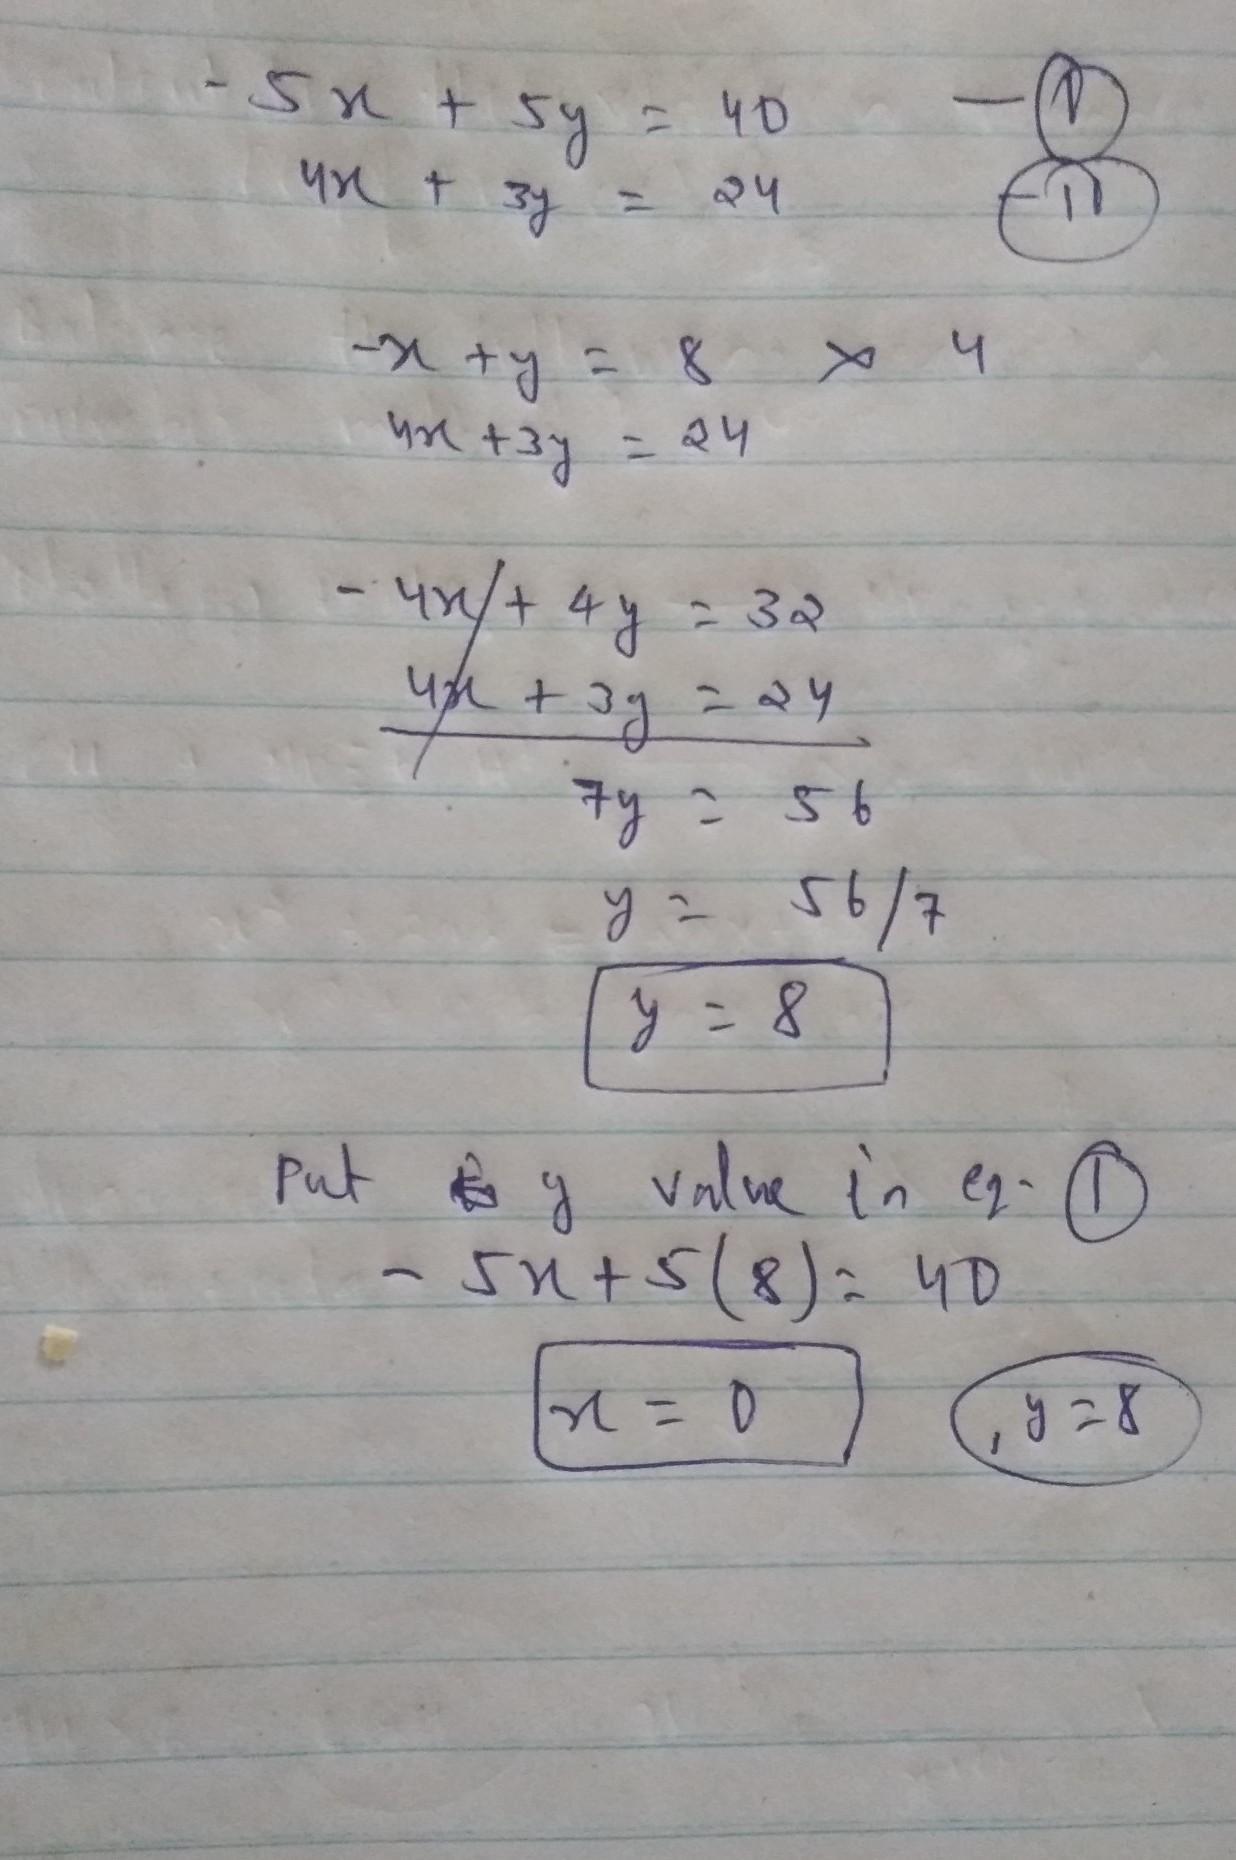 -5x + 5y = 40 - I
4x + 3y = 24 - II
-x + y = 8 × 4
4x + 3y = 24
- 4x + 4y = 32
4x + 3y = 24
7y = 56
y = 56/7
y = 8
Put y value in eq. I
- 5x + 5(8) = 40
x = 0 , y = 8